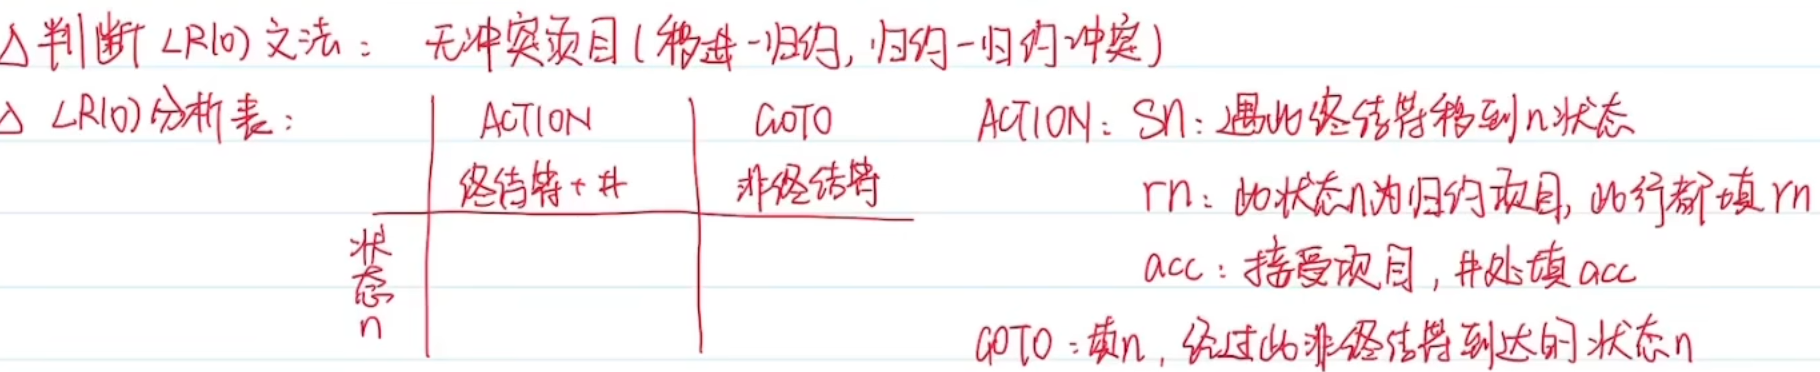 △ 判断 LR(0) 文法： 无冲突项目(移进-归约, 归约-归约冲突)
△ LR(0)分析表：
ACTION GOTO
终结符+# 非终结符
状态n
ACTION: Sn: 遇此终结符移到n状态
rn: 此状态n为归约项目, 此行都填rn
acc: 接受项目, #处填acc
GOTO: 填n, 经过此非终结符到达的状态n